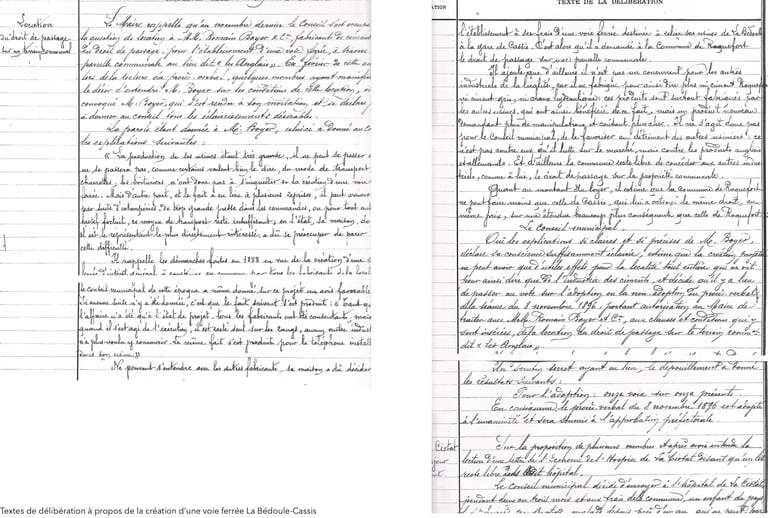 Location
du droit de passage
sur un terrain communal
M. le Maire rappelle qu'en novembre dernier le Conseil s'est occupé
la question de location à MM. Romain Boyer & Cie, fabricants de ciments
du droit de passage, pour l'établissement d'une voie ferrée, à travers
parcelle communale au lieu dit « les Anglais ». En février de cette an
lors de la lecture du procès-verbal, quelques membres ayant manifesté
le désir d'entendre M. Boyer sur les conditions de cette location, il
convoqué M. Boyer, qui s'est rendu à son invitation et se déclare
à donner au conseil tous les éclaircissements désirables.
La parole étant donnée à M. Boyer, celui-ci a donné au Co
les explications suivantes :
« La production de ses usines étant très grande, il ne peut se passer
ne se passera pas, comme certains veulent bien le dire, du mode de transport
charrettes, les voituriers n'ont donc pas à s'inquiéter de la création d'une voie
ferrée. Mais d'autre part, et le fait a eu lieu à plusieurs reprises, il peut survenir
par suite d'intempéries, de très grande presse dans les commandes, ou pour tout autre
motif fortuit, ce moyen de transport reste insuffisant ; en l'état, sa maison, do
il est le représentant le plus directement intéressé, a dû se préoccuper de parer
cette difficulté.
Il rappelle les démarches faites en 1888 en vue de la création d'une
ferrée d'intérêt général à construire en commun par tous les fabricants de la local
le conseil municipal de cette époque a même donné sur ce projet un avis favorable
si aucune suite n'y a été donnée, c'est que le fait suivant s'est produit : « Tant que
l'affaire n'a été qu'à l'état de projet, tous les fabricants ont été consentants, mais
quand il s'est agi de l'exécution, il est resté seul sur les rangs, aucun autre indust
n'a plus voulu y concourir. Le même fait s'est produit pour le téléphone install
dans son usine. »
Ne pouvant s'entendre avec les autres fabricants, sa maison a dû décider
ATION
TEXTE DE LA DÉLIBÉRATION
l'établissement à ses frais d'une voie ferrée destinée à relier ses usines de La Bédoule
à la gare de Cassis. C'est alors qu'il a demandé à la Commune de Roquefort
le droit de passage sur une parcelle communale.
Il ajoute que d'ailleurs il n'est pas un concurrent pour les autres
industriels de la localité, car il ne fabrique pour ainsi dire plus ni ciment Roquefort
ni ciment gris, ni chaux hydraulique ; ces produits sont surtout fabriqués par
les autres usines, qui ont ainsi bénéficié de ce fait, mais un produit nouveau
demandant plus de manipulations et coûtant plus cher. Il ne s'agit donc pas
pour le Conseil municipal, de le favoriser au détriment des autres usiniers ; ce
n'est pas contre eux qu'il lutte sur le marché, mais contre les produits anglais
et allemands. Et d'ailleurs la commune reste libre de concéder aux autres indus
triels, comme à lui, le droit de passage sur la propriété communale.
Quant au montant du loyer, il estime que la commune de Roquefort
ne peut faire moins que celle de Cassis, qui lui a octroyé le même droit, au
même prix, sur une étendue beaucoup plus conséquente que celle de Roquefort.
Le Conseil municipal,
Ouï les explications si claires et si précises de M. Boyer,
déclare sa conscience suffisamment éclairée, estime que la création projetée
ne peut avoir que d'utiles effets pour la localité tout entière qui ne vit
pour ainsi dire que de l'industrie des ciments, et décide qu'il y a lieu
de passer au vote sur l'adoption ou la non adoption du procès-verbal
de la séance du 8 novembre 1896, portant autorisation au Maire de
traiter avec MM. Romain Boyer et Cie, aux clauses et conditions qui y
sont insérées, de la location du droit de passage sur le terrain commu-
dit « Les Anglais ».
Un scrutin secret ayant eu lieu, le dépouillement a donné
les résultats suivants :
Pour l'adoption : onze voix sur onze présents.
En conséquence le procès-verbal du 8 novembre 1896 est adopté
à l'unanimité et sera soumis à l'approbation préfectorale.
Ciotat
Sur la proposition de plusieurs membres et après avoir entendu la
lecture d'une lettre de l'Econome de l'Hospice de La Ciotat disant qu'un lit
reste libre dans ledit hôpital,
Le Conseil municipal décide d'envoyer à l'hôpital de La Ciotat,
pendant deux ou trois mois et aux frais de la commune, un enfant du pays
Textes de délibération à propos de la création d'une voie ferrée La Bédoule-Cassis